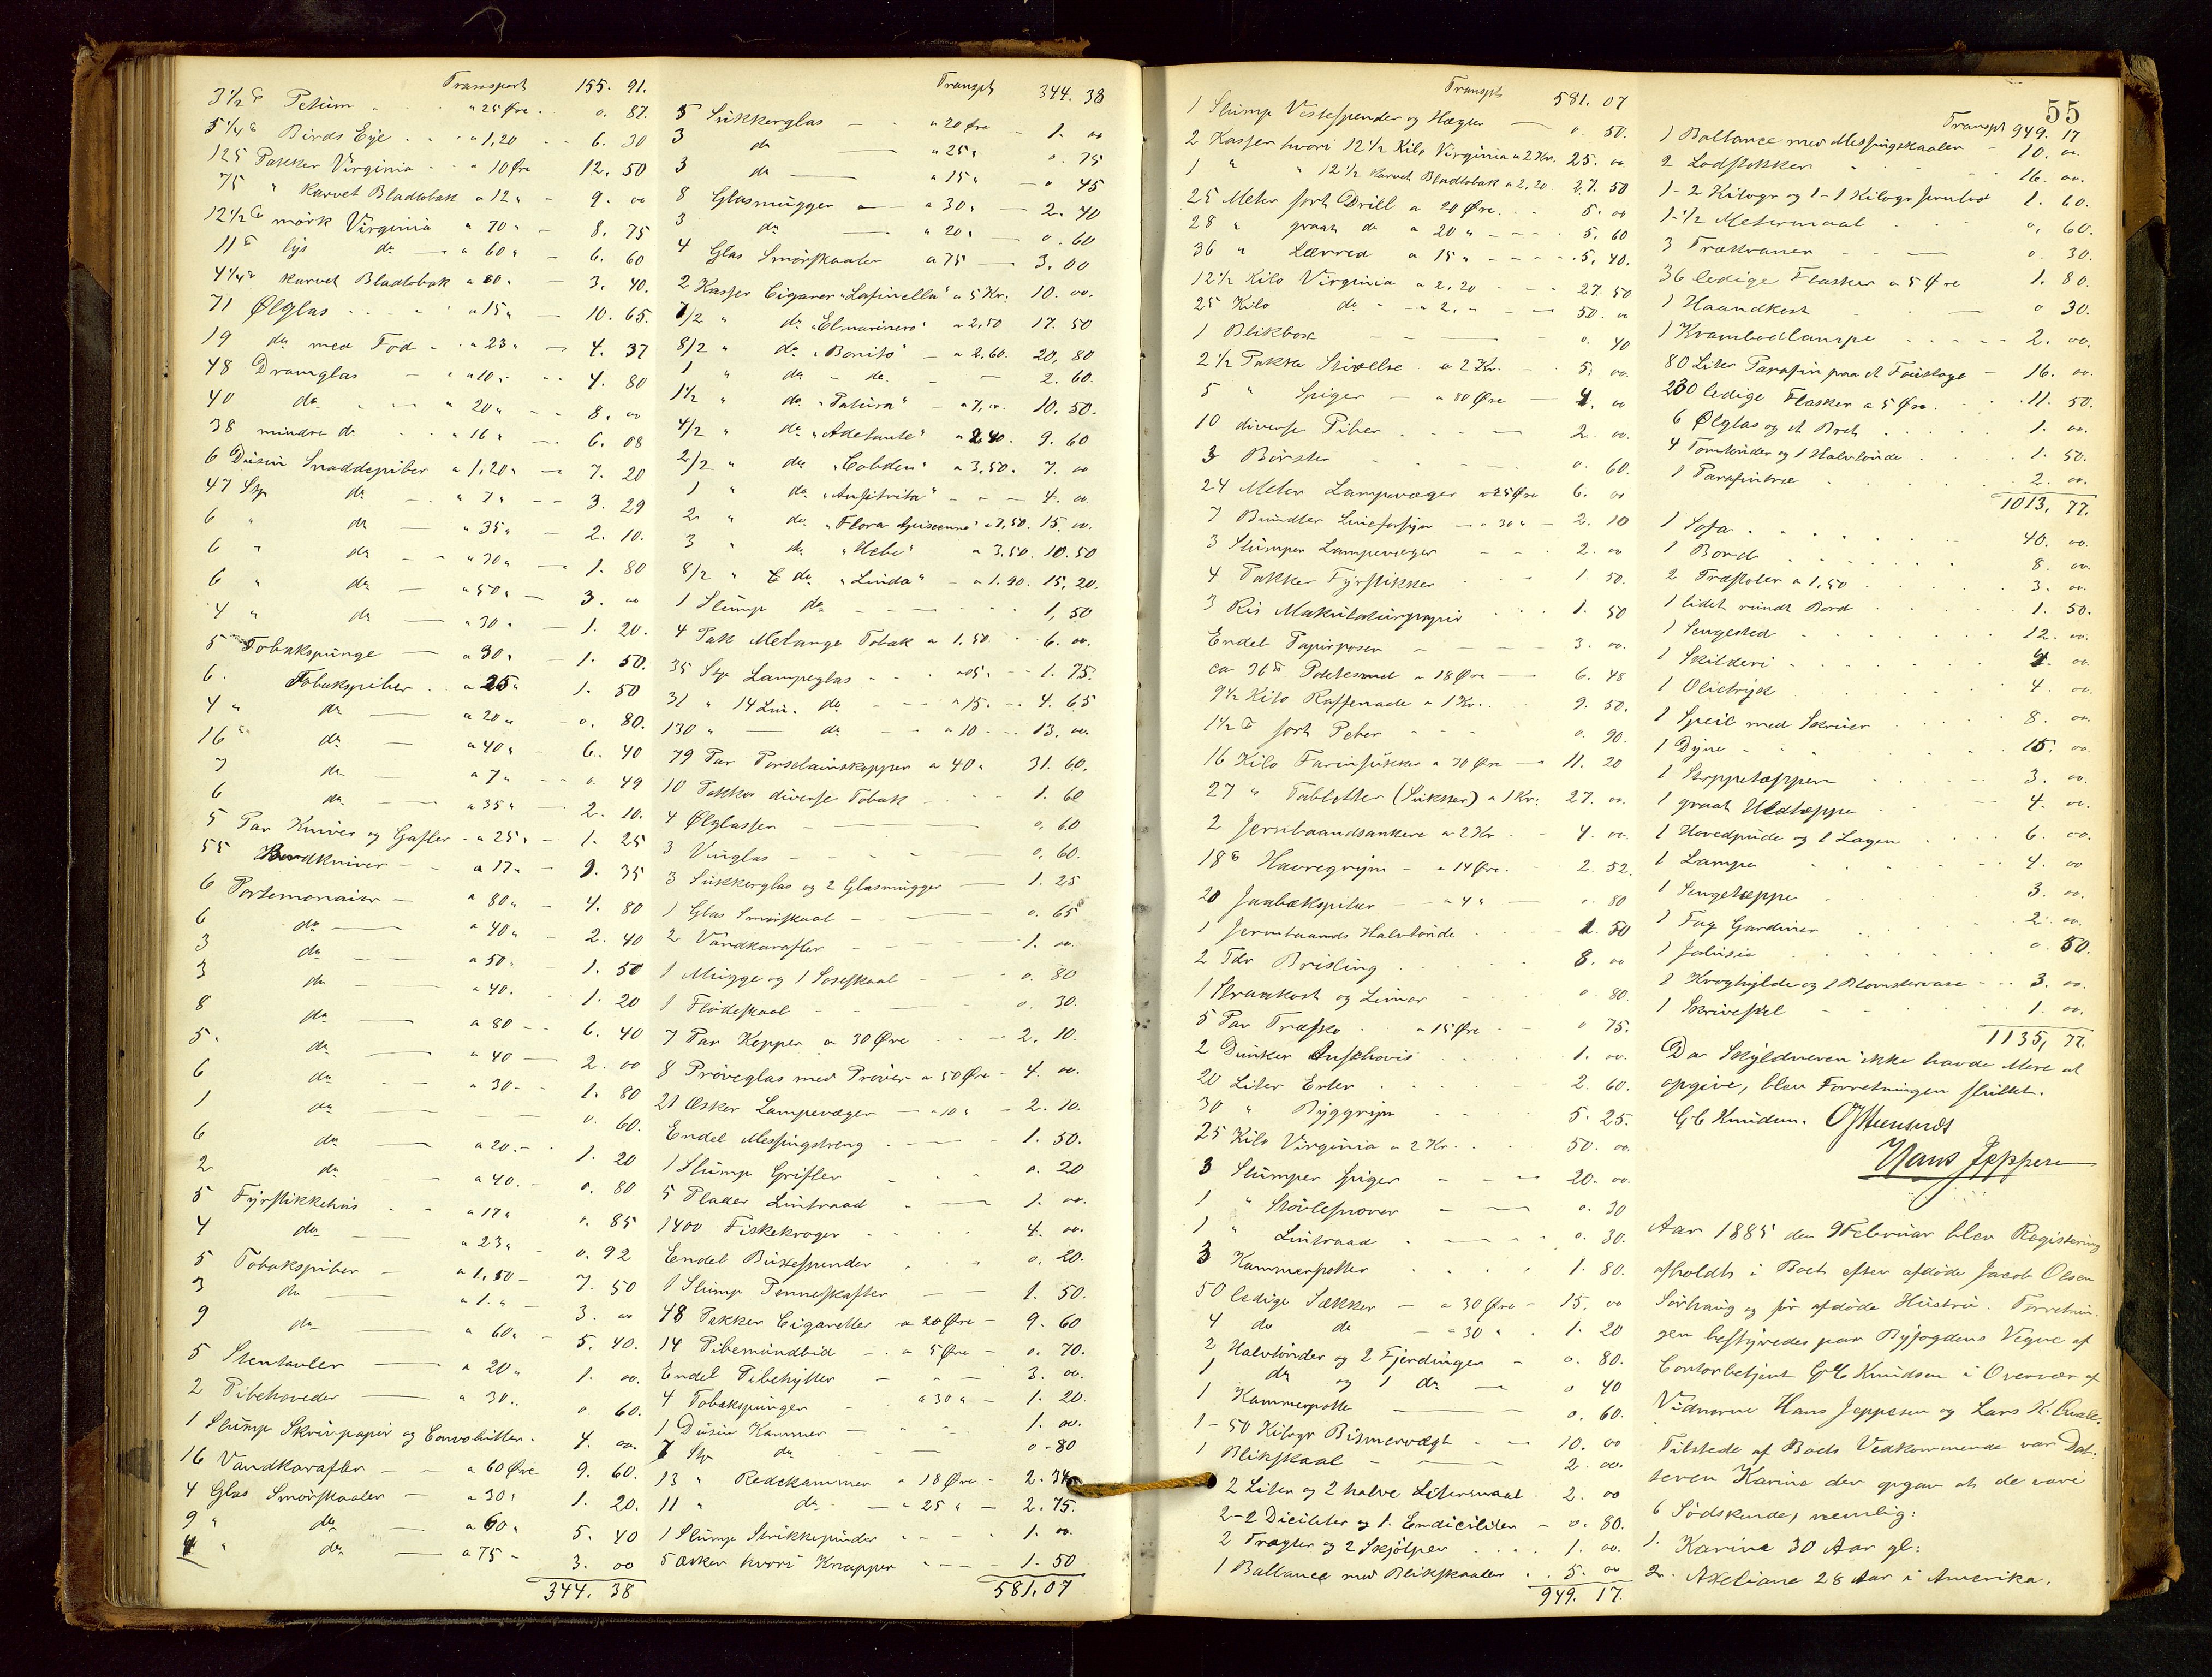 Transport 155. 91.
3 1/2 ℔ Petum " 25 Øre. 0. 87.
5 1/4 ℔ Birds Eye " 1,20 6. 30
125 Pakker Virginia a 10 Øre 12. 50
75 " Karvet Bladtobak a 12 " 9. 00
12 1/2 ℔ mörk Virginia " 70 " 8. 75
11 ℔ lys do " 60 " 6. 60
4 1/4 ℔ Karvet Bladtobak a 80 " 3. 40.
71 Ølglas " 15 " 10. 65.
19 do med Fod " 23 " 4. 37
48 Dramglas " 10 " 4. 80
40 do " 20 " 8. 00
38 mindre do " 16 " 6. 08
6 Dusin Snaddepiber a 1,20 " 7. 20
47 Stk do " 7 " 3. 29
6 " do " 35 " 2. 10.
6 " do " 30 " 1. 80
6 " do " 50 " 3. 00
4 " do " 30 " 1. 20.
5 Tobakspunge a 30 " 1. 50.
6. Tobakspiber a 25 " 1. 50
4 " do a 20 " 0. 80.
16 " do a 40 " 6. 40
7 do a 7 " 0. 49
6 do a 35 " 2. 10.
5 Par Knive og Gafler a 25 " 1. 25
55 Bordkniver a 17 " 9. 35
6 Portemonaier a 80 " 4. 80
6 do a 40 " 2. 40
3 do a 50 " 1. 50
3 do a 40. 1. 20
8 do a 80 6. 40
5. do a 40 2. 00
6 do a 30 1. 80
1 do 0. 60.
6 do a 20. 1. 20
2 do a 40. 0. 80
5 Fyrstikkehus a 17 " 0. 85
4 do " 23 " 0. 92
5 Tobakspiber a 1,50 7. 50
3 do a 1. " 3. 00
9 do a 60 " 5. 40.
5 Stentavler a 20 " 1. 00.
2 Pibehoveder a 30.. 0. 60.
1 Slump Skrivpapir og Convolutter. 4. 00.
16 Vandkarafler a 60 Øre 9. 60.
4 Glas Smörskaaler a 30 " 1. 20.
9 " do a 60 " 5. 40
4 " do a 75 3. 00
344. 38
Transpt 344. 38
5 Sukkerglas " 20 Øre 1. 00
3 do " 25 " 0. 75
3 do a 15 " 0 45
8 Glasmugger a 30 " 2. 40
3 do " 20 " 0. 60
4 Glas Smörskaaler a 75 3. 00
2 Kasser Cigarer "Lasinella" a 5 Kr. 10. 00.
7/2 " do "Elmarinero" a 2,50 17. 50
8/2 " do "Bonito" a 2,60. 20, 80
1 " do - do. 2. 60.
1 1/2 " do "Patura" a 7, 00. 10. 50.
4/2 " do "Adelante" a 2 40. 9. 60
2/2 " do "Cobden" a 3,50. 7. 00
1 " do "Anfitrita" 4. 00.
2 " do. a 7,50. 15. 00.
3 " do "Hebe" a 3,50. 10. 50
8/2 " do "Linda" a 1. 90. 15, 20.
1 Slump do 1, 50
4 Pak Melange Tobak a 1, 50. 6. 00.
35 Stk Lampeglas a 05 " 1. 75.
31 " 14 Lin. do " 15. 4. 65
130 " do " 10 13. 00.
79 Par Porselainskopper a 40 " 31. 60.
10 Pakker diverse Tobak 1. 60
4 Ølglasser 0, 60
3 Vinglas 0, 60.
3 Sukkerglas og 2 Glasmugger 1. 25
1 Glas Smörskaal 0. 65
2 Vandkarafler 1. 00.
1 Mugge og 1 Soseskaal 0. 80
1 Flödeskaal 0. 30.
7 Par Kopper a 30 Øre 2. 10.
8 Pröveglas med Pröver a 50 Øre 4. 00.
21 Æsker Lampevæger " 10 " 2. 10.
Endel Messingstreng 1. 50.
1 Slump Grifler 0. 20
5 Plader Lintraad 1. 00.
1400 Fiskekroger 4. 00.
Endel Buxespender 0. 20.
1 Slump Penneskafter 1. 50.
48 Pakker Cigaretter a 20 Øre 9. 60
14 Pibemundbid a 5 Øre 0. 70.
Endel Pibehytter 3. 00.
4 Tobakspunger a 30 " 1. 20.
1 Dusin Kammer 1. 00.
7 Stk do 0 80
13 " Redekammer a 18 Øre 2. 34
11 " do " 25 " 2. 75.
1 Slump Strikkepinder 1. 00.
5 Æsker hvori Knapper 1. 50
581, 07
Transpt 581. 07
1 Slump Vestespender og Hægter 0. 50.
2 Kasser hvori 12 1/2 Kilo Virginia a 2 Kr. 25. 00
1 " " 12 1/2 Karvet Bladtobak a 2,20. 27. 50
25 Meter sort Drill a 20 Øre. 5. 00
28 " graat do a 20 " 5. 60
36 " Lærred a 15 " 5, 40.
12 1/2 Kilo Virginia a 2,20 27. 50
25 Kilo do a 2, " 50. 00
1 Blikbox 0. 40
2 1/2 Pakke Stivelse a 2 Kr. 5. 00.
5 " Spiger a 80 Øre 4. 00
10 diverse Piber 2. 00.
3 Börster 0. 60.
24 Meter Lampevæger a 25 Øre 6. 00
7 Bundter Lineforsyn a 30 " 2. 10
3 Slumper Lampevæger 2. 00
4 Pakker Fyrstikker 1. 50.
3 Ris Makulaturpapir 1. 50
Endel Papirposer 3. 00.
ca 36 ℔ Potetesmel a 18 Øre 6. 48
9 1/2 Kilo Raffenade a 1 Kr. 9. 50.
1 1/2 ℔ sort Peber 0. 90.
16 Kilo Farinsukker a 70 Øre 11. 20
27 " Tabletter (Sukker) a 1 Kr. 27. 00.
2 Jernbaandsankere a 2 Kr 4. 00.
18 ℔ Havregryn a 14 Øre. 2. 52.
20 Janbækspiber a 4 " 0. 80
1 Jernbaands Halvtönde 1. 50
2 Tdr Brisling 8. 00
1 Straakost og Limar 0. 80.
5 Par Træsko a 15 Øre 0 75.
2 Dunker Ansjhovis 1. 00.
20 Liter Erter 2. 60.
30 " Byggryn 5. 25.
25 Kilo Virginia a 2 Kr. 50. 00.
3 Slumper Spiger 20. 00.
1 " Stövlesnorer 0. 30
1 " Lintraad 0. 30.
3 Kammerpotter 1. 80.
50 ledige Sækker a 30 Øre 15. 00
4 do do " 30 " 1. 20
2 Halvtönder og 2 Fjerdinger 0. 80.
1 do og 1 do 0 40
1 Kammerpotte 0. 60.
1 - 50 Kilogr Bismervægt 10. 00
1 Blikskaal 2. 00.
2 Liter og 2 halve Litersmaal 2. 00
2-2 Deciliter og 1. Endeciliter 0. 80.
2 Tragter og 2 Skjölper 1. 00.
1 Ballance med Blikskaaler 5. 00
949. 17.
55
Transpt 949. 17
1 Ballance med Messingskaaler 10. 00.
2 Lodstokker 16. 00.
1-2 Kilogr og 1-1 Kilogr Jernlod 1. 60.
1-1/2 Metermaal 0, 60.
3 Trækraner 0. 30.
36 ledige Flasker a 5 Øre 1. 80.
1 Haandkost 0 30.
1 Krambodlampe 2. 00.
80 Liter Parafin paa et Foustage 16. 00.
230 ledige Flasker a 5 Øre. 11. 50.
6 Ølglas og et Bret 1. 00.
4 Tomtönder og 1 Halvtönde 1. 50.
1 Parafintræ 2. 00.
1013, 77.
1 Sofa 40. 00.
1 Bord 8. 00.
2 Træstoler a 1,50 3. 00.
1 lidet rundt Bord 1. 50.
1 Sengested 12. 00.
1 Skilderi 4. 00
1 Olietryk 4. 00.
1 Speil med Skruer 8. 00.
1 Dyne 15. 00.
1 Stoppetæppen 3. 00.
1 graat Uldtæppe 4. 00.
1 Hovedpude og 1 Lagen 6. 00.
1 Lampe 4. 00
1 Sengetæppe 3. 00.
1 Fag Gardiner 2. 00.
1 Jalusie 0. 50.
1 Kroghylde og 1 Blomstervase 3. 00.
1 Skrivestel 1. 00.
1135, 77.
Da Skyldneren ikke havde Mere at
opgive, blev Forretningen sluttet.
G C Knudsen.
Hans Jeppesen
Aar 1885 den 9 Februar blev Registering
afholdt i Boet efter afdöde Jacob Olsen
Sörhaug og för afdöde Hustru. Forretnin-
gen bestyredes paa Byfogdens Vegne af
Contorbetjent G C Knudsen i Overvær af
Vidnerne Hans Jeppesen og Lars K.
Tilstede af Boets Vedkommende var Dat-
teren Karine der opgav at de vare
6 Södskende, nemlig:
1. Karine 30 Aar gl:
2. Axeliane 28 Aar i Amerika.